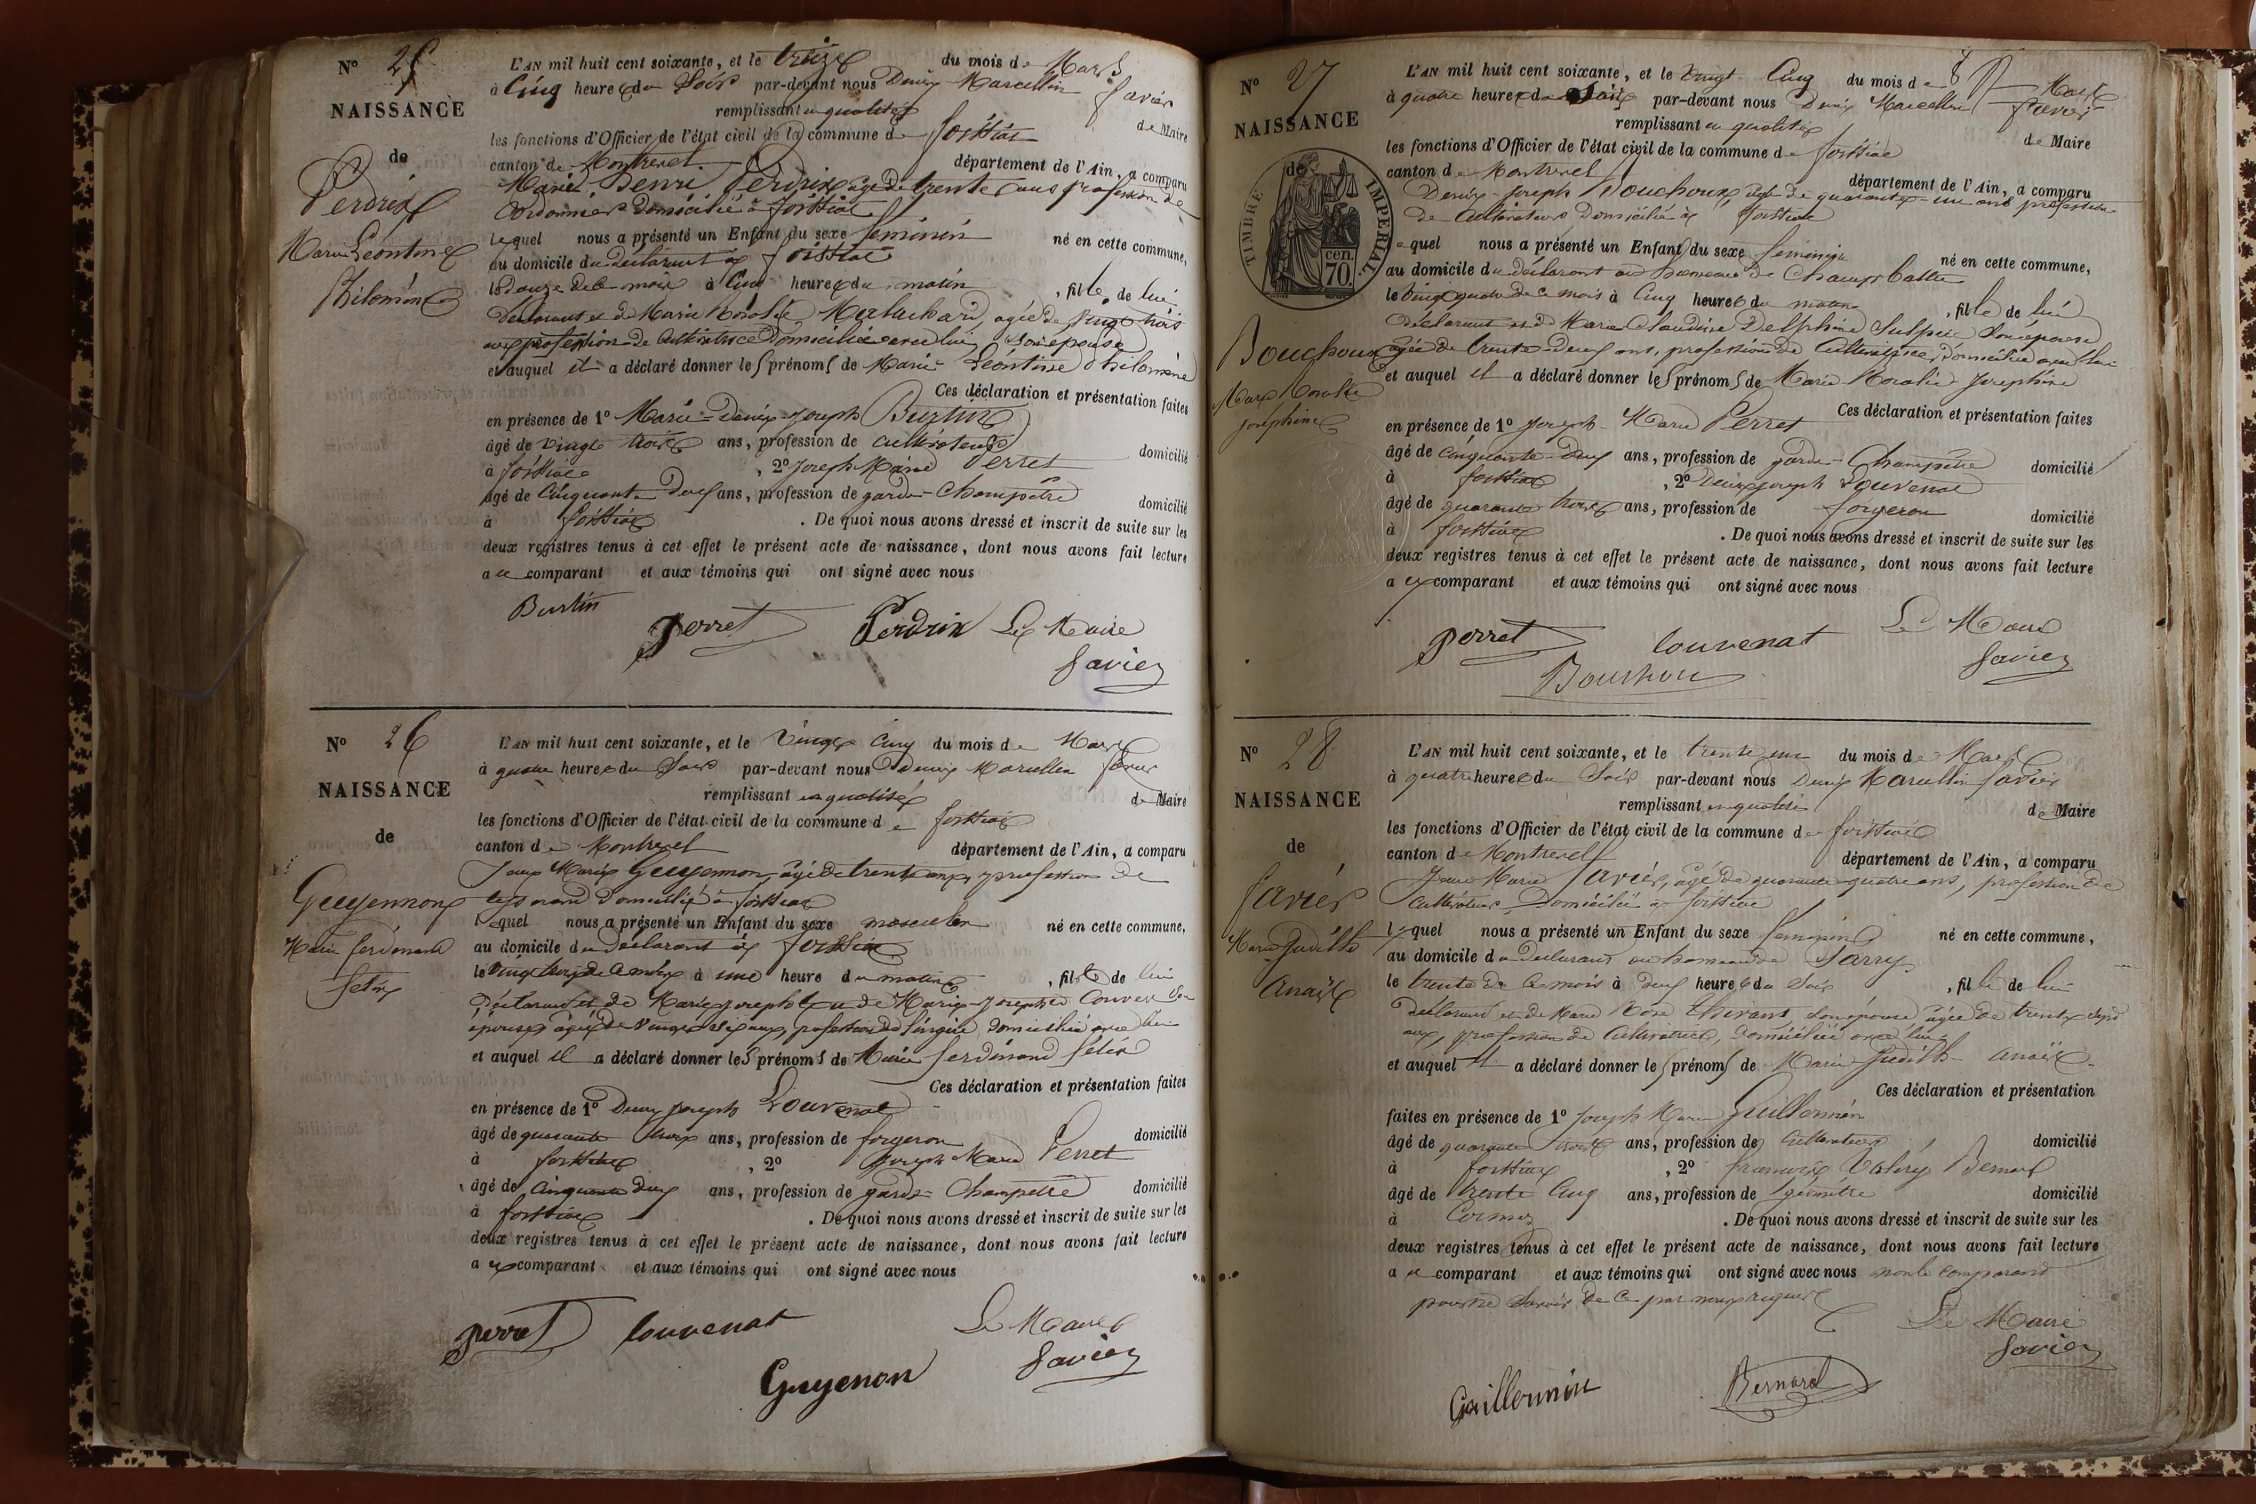 N° 25
NAISSANCE
de
Perdrix
Marie Léontine
Philomène
L'AN mil huit cent soixante, et le treize du mois de Mars
à Cinq heures du Soir par-devant nous Denis Marcellin Favier
remplissant en qualité de Maire
les fonctions d'Officier de l'état civil de la commune de foissiat
canton de Montrevel département de l'Ain, a comparu
Marie Henri Perdrix âgé de trente ans profession de
Cordonnier domicilié à foissiat
lequel nous a présenté un Enfant du sexe féminin né en cette commune,
au domicile du déclarant à foissiat
le douze de ce mois à Cinq heures du matin, fille de lui
déclarant et de Marie Rosalie âgée de vingt trois
ans profession de Cultivatrice domiciliée avec lui, son épouse
et auquel il a déclaré donner les prénoms de Marie Léontine Philomène
Ces déclaration et présentation faites
en présence de 1° Marie-Denis-Joseph Burtin
âgé de vingt trois ans, profession de cultivateur domicilié
à foissiat, 2° Joseph Marie Perret
âgé de Cinquante Deux ans, profession de garde-Champêtre domicilié
à foissiat. De quoi nous avons dressé et inscrit de suite sur les
deux registres tenus à cet effet le présent acte de naissance, dont nous avons fait lecture
a ce comparant et aux témoins qui ont signé avec nous
Burtin
perret Perdrix Le Maire
favier
N° 26
NAISSANCE
de
Guyennon
Marie ferdinand
félix
L'AN mil huit cent soixante, et le Vingt Cinq du mois de Mars
à quatre heures du Soir par-devant nous Denis Marcellin favier
remplissant en qualité de Maire
les fonctions d'Officier de l'état civil de la commune de foissiat
canton de Montrevel département de l'Ain, a comparu
Marie Guyennon, âgé de trente ans, profession de
tisserand domicilié à foissiat
lequel nous a présenté un Enfant du sexe masculin né en cette commune,
au domicile du déclarant à foissiat
le Vingt trois de ce mois à une heure du matin, fils de lui
déclarant et de Marie Josephte Couvert Son
épouse, âgée de Vingt six ans, profession de lingère, domiciliée avec lui
et auquel il a déclaré donner les prénoms de Marie ferdinand félix
Ces déclaration et présentation faites
en présence de 1° Denis joseph Louvenat
âgé de quarante trois ans, profession de forgeron domicilié
à foissiat, 2° Joseph Marie Perret
âgé de Cinquante Deux ans, profession de garde-Champêtre domicilié
à foissiat. De quoi nous avons dressé et inscrit de suite sur les
deux registres tenus à cet effet le présent acte de naissance, dont nous avons fait lecture
a ce comparant et aux témoins qui ont signé avec nous
perret louvenat Le Maire
favier
Guyenon
N° 27
NAISSANCE
de
TIMBRE IMPÉRIAL
cen. 70.
Bouchoux
Marie Rosalie
Joséphine
L'AN mil huit cent soixante, et le Vingt Cinq du mois de Mars
à quatre heures du Soir par-devant nous Denis Marcellin favier
remplissant en qualité de Maire
les fonctions d'Officier de l'état civil de la commune de foissiat
canton de Montrevel département de l'Ain, a comparu
Denis-Joseph Bouchoux, âgé de quarante-un ans profession
de Cultivateur domicilié à foissiat
lequel nous a présenté un Enfant du sexe féminin né en cette commune,
au domicile du déclarant au hameau de
le Vingt quatre de ce mois à Cinq heures du matin, fille de lui
déclarant et de Marie Claudine Delphine Sulpice Son épouse
âgée de trente-deux ans, profession de Cultivatrice, domiciliée avec lui
et auquel il a déclaré donner les prénoms de Marie Rosalie Joséphine
Ces déclaration et présentation faites
en présence de 1° Joseph Marie Perret
âgé de Cinquante-Deux ans, profession de garde-Champêtre domicilié
à foissiat, 2° Denis joseph Louvenat
âgé de quarante trois ans, profession de forgeron domicilié
à foissiat. De quoi nous avons dressé et inscrit de suite sur les
deux registres tenus à cet effet le présent acte de naissance, dont nous avons fait lecture
a ce comparant et aux témoins qui ont signé avec nous
perret louvenat Le Maire
favier
Bouchoux
N° 28
NAISSANCE
de
favier
Marie Judith
Anaïs
L'AN mil huit cent soixante, et le trente un du mois de Mars
à quatre heures du Soir par-devant nous Denis Marcellin favier
remplissant en qualité de Maire
les fonctions d'Officier de l'état civil de la commune de foissiat
canton de Montrevel département de l'Ain, a comparu
Jean Marie favier, âgé de quarante quatre ans, profession de
Cultivateur, domicilié à foissiat
lequel nous a présenté un Enfant du sexe féminin né en cette commune,
au domicile du déclarant au hameau de Sarry
le trente de ce mois à deux heures du Soir, fille de lui
déclarant et de Marie Rose Thivant Son épouse âgée de trente sept
ans, profession de Cultivatrice, domiciliée avec lui
et auquel il a déclaré donner les prénoms de Marie-Judith-Anaïs
Ces déclaration et présentation
faites en présence de 1° Joseph Marie Guillermin
âgé de quarante trois ans, profession de Cultivateur domicilié
à foissiat, 2° françois Valéry Bernard
âgé de trente Cinq ans, profession de géomètre domicilié
à Cormoz. De quoi nous avons dressé et inscrit de suite sur les
deux registres tenus à cet effet le présent acte de naissance, dont nous avons fait lecture
a ce comparant et aux témoins qui ont signé avec nous non le comparant
pour ne savoir de ce par nous requis
Le Maire
favier
Guillermin Bernard